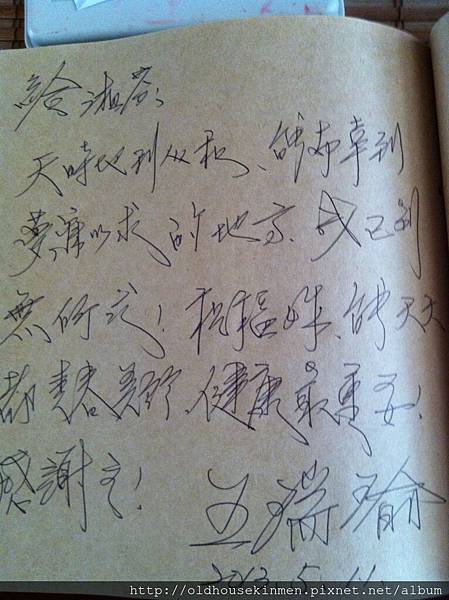 給淑芬:
天時地利人和、能南草到
夢寐以求的地方、我已到
無所求!祝福妹、能天天
都青春美好、健康最重要!
感謝主!
王瑞瑜
2013.5.
http://oldhousekinmen.pixnet.net/album